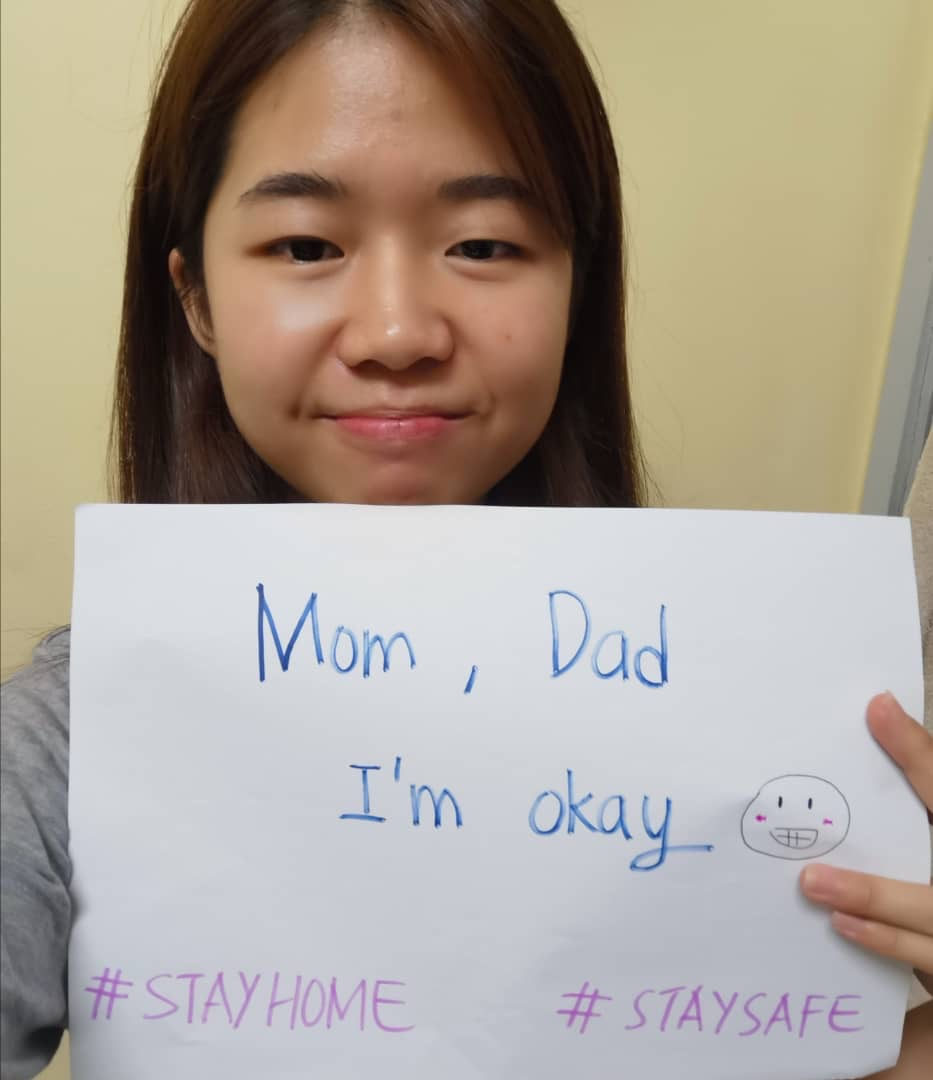 Mom , Dad
I'm okay
#STAYHOME #STAYSAFE